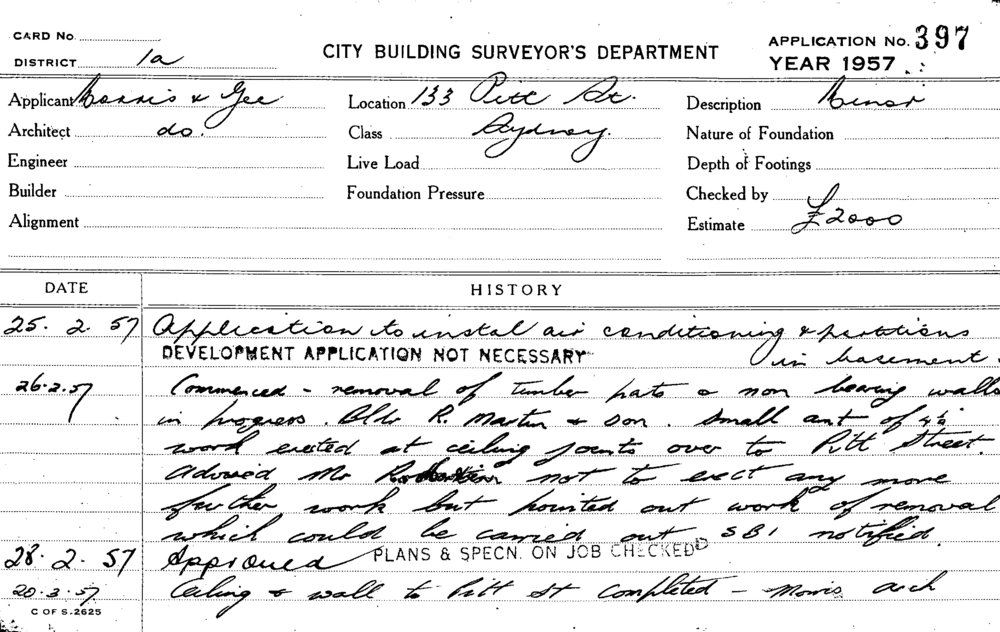 CARD No.
CITY BUILDING SURVEYOR'S DEPARTMENT
APPLICATION No. 397
DISTRICT 1a
YEAR 1957
Applicant Morris & Gee
Location 133 Pitt St.
Description Minor
Architect do.
Class Sydney.
Nature of Foundation
Engineer
Live Load
Depth of Footings
Builder
Foundation Pressure
Checked by
Alignment
Estimate £2000
DATE
HISTORY
25. 2. 57 Application to instal air conditioning & partitions
DEVELOPMENT APPLICATION NOT NECESSARY in basement.
26.2.57 Commenced - removal of timber parts & non bearing walls
in progress. Bldr R. Martin & Son. Small amt of 4½
work erected at ceiling joists over to Pitt Street.
Advised Mr not to erect any more
further work but pointed out work of removal
which could be carried out SBI notified.
28. 2. 57 Approved PLANS & SPECN. ON JOB CHECKED
20.3.57 Ceiling & wall to Pitt St completed - Morris arch
C OF S.2625